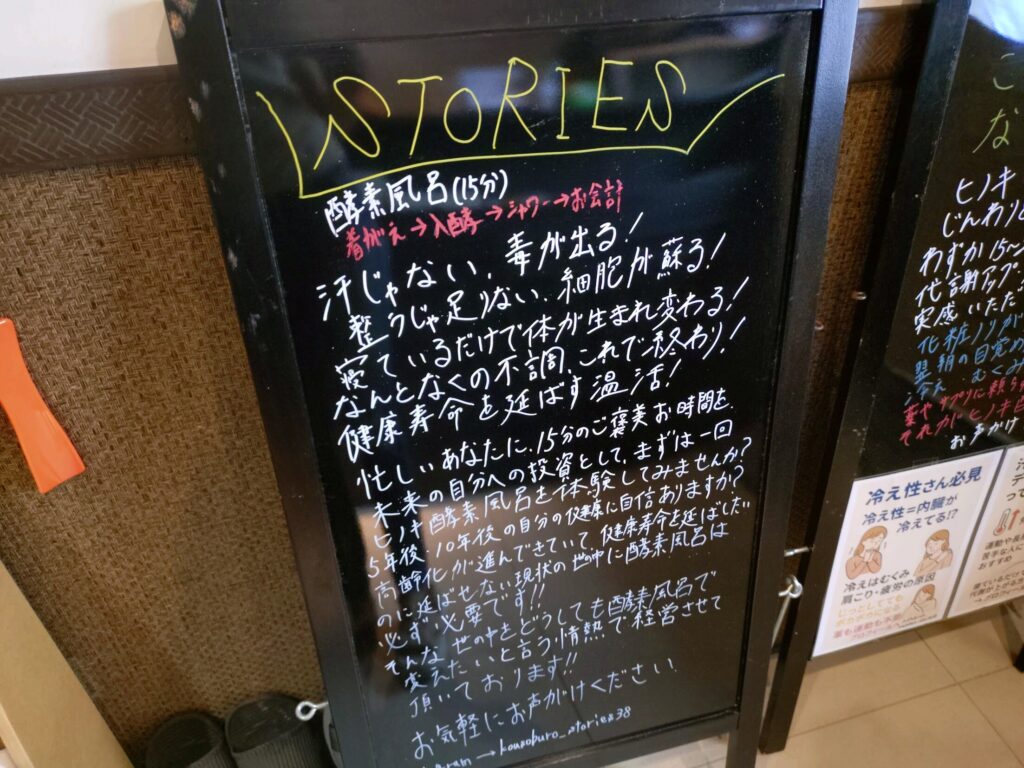 STORIES
酵素風呂(15分)
着がえ→入酵→シャワー→お会計
汗じゃない、毒が出る!
整うじゃ足りない、細胞が蘇る!
寝ているだけで体が生まれ変わる!
なんとなくの不調、これで終わり!
健康寿命を延ばす温活!
忙しいあなたに、15分のご褒美お時間を、
未来の自分への投資として、まずは一回
ヒノキ酵素風呂を体験してみませんか?
5年後、10年後の自分の健康に自信ありますか?
高齢化が進んできていて、健康寿命を延ばしたい
のに延ばせない現状の世の中に酵素風呂は
必ず必要です!!
そんな世の中をどうしても酵素風呂で
変えたいと言う情熱で経営させて
頂いております!!
お気軽にお声がけください、
gram→kousoburo_stories38
こ
な
ヒノキ
じんわり
わずか15〜
代謝アップ
実感いただ
化粧ノリが
翌朝の目覚め
冷え、むくみ
薬やサプリに頼ら
それがヒノキ
お声がけ
冷え性さん必見
冷え性=内臓が
冷えてる!?
冷えはむくみ
肩こり・疲労の原因
じっとしてても
ポカポカになる
薬も運動も不要
運動や長
苦手な人に
おすすめ
寝ているだけ
代謝が上がる